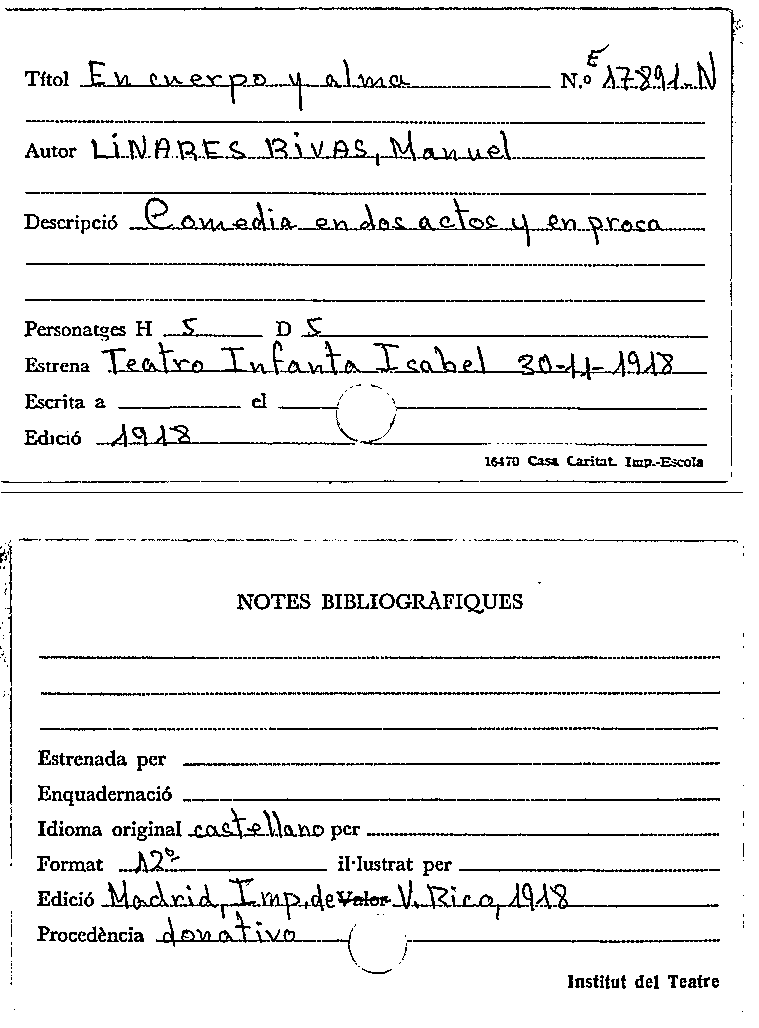 Títol En cuerpo y alma N.º E 17891-N
Autor LINARES RIVAS, Manuel
Descripció Comedia en dos actos y en prosa
Personatges H 5 D 5
Estrena Teatro Infanta Isabel 30-11-1918
Escrita a el
Edició 1918
16470 Casa Caritat. Imp.-Escola
NOTES BIBLIOGRÀFIQUES
Estrenada per
Enquadernació
Idioma original castellano per
Format 12º il·lustrat per
Edició Madrid, Imp. de Valor V. Rico, 1918
Procedència donativo
Institut del Teatre